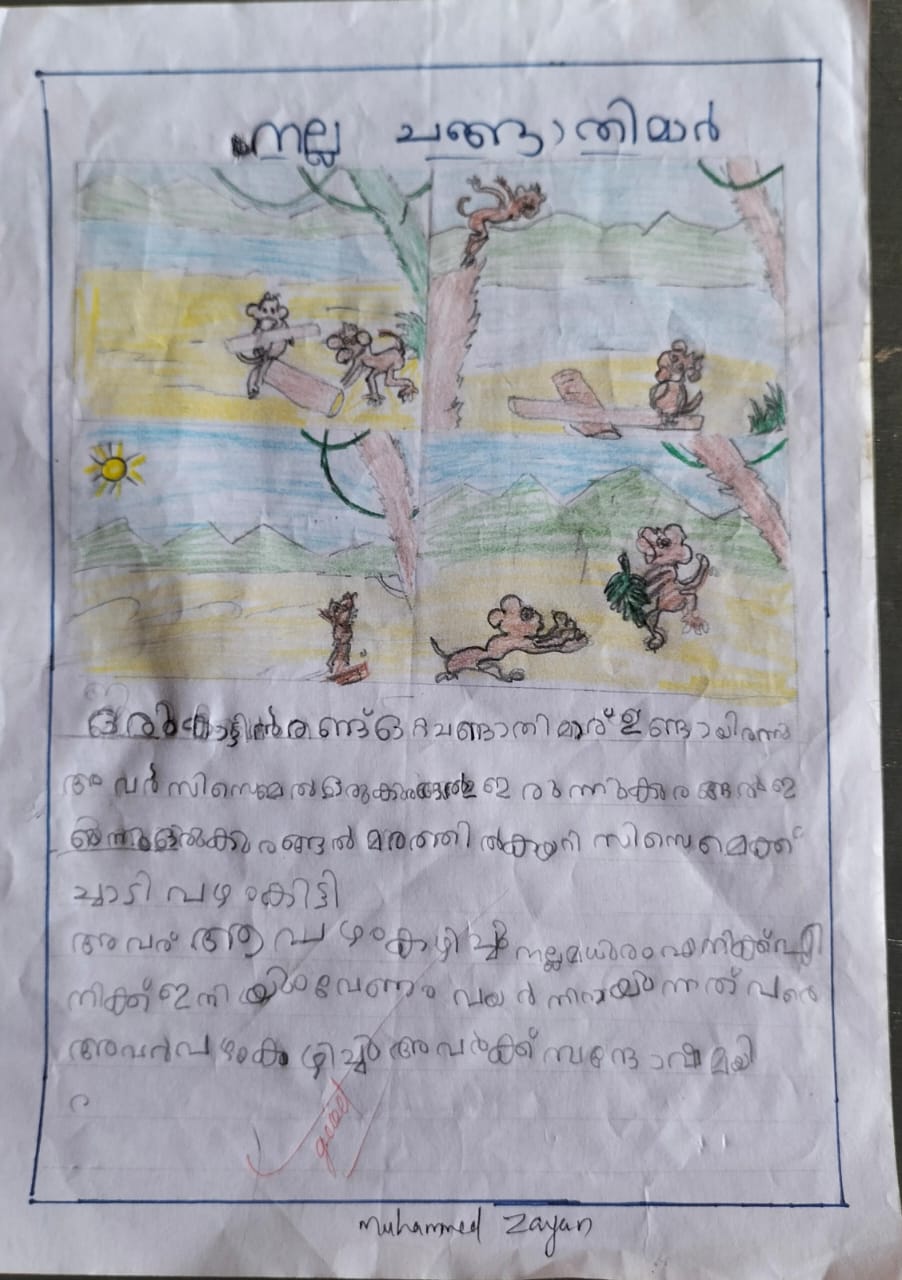 നല്ല ചങ്ങാതിമാർ
ഒരു കാട്ടിൽ രണ്ട് ചങ്ങാതിമാര് ഉണ്ടായിരുന്നു
അവർ സിസൊമെൽ ഒരു ഇരുന്നു
ഒരു കുരങ്ങൽ മരത്തിൽ കയറി സിസെമെക്ക്
ചാടി പഴംകിട്ടി
അവര് ആ പഴംകഴിച്ചു നല്ലമധുരം
നിക്ക് ഇനിയും വേണം വയർ നിറയുന്നത് വരെ
അവർ പഴംകഴിച്ചു അവർക്ക്
good
Muhammed Zayan